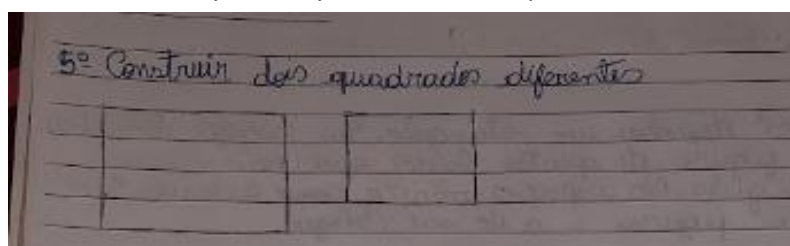 5º Construir dois quadrados diferentes